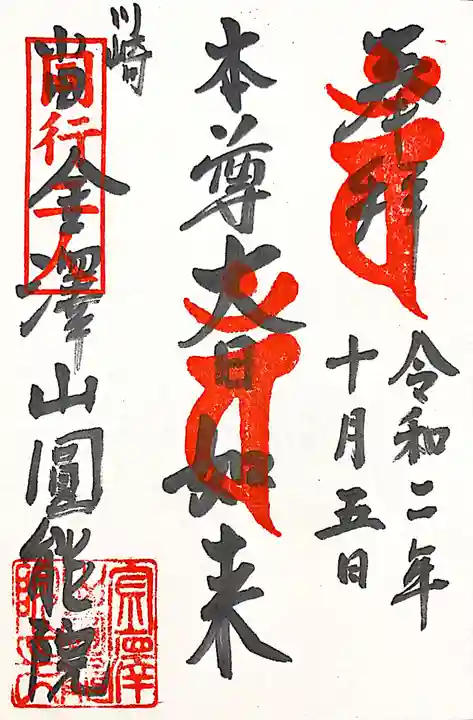 奉拝
令和二年
十月五日
本尊大日如来
川崎
當金澤山圓能院
同行二人